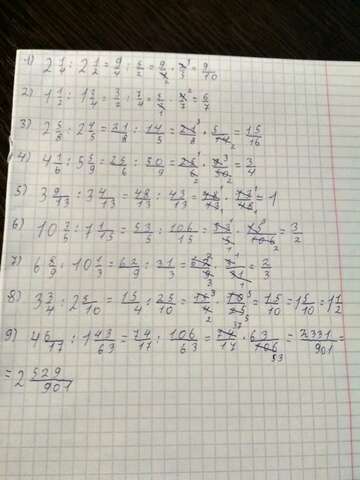 1) 2 1/4 : 2 1/2 = 9/4 : 5/2 = 9/4 · 2/5 = 9/10
2) 1 1/2 : 1 3/4 = 3/2 : 7/4 = 3/2 · 4/7 = 6/7
3) 2 5/8 : 2 4/5 = 21/8 : 14/5 = 21/8 · 5/14 = 15/16
4) 4 1/6 : 5 5/9 = 25/6 : 50/9 = 25/6 · 9/50 = 3/4
5) 3 9/13 : 3 4/13 = 48/13 : 43/13 = = 1
6) 10 3/5 : 7 1/15 = 53/5 : 106/15 = 53/5 · 15/106 = 3/2
7) 6 8/9 : 10 1/3 = 62/9 : 31/3 = = 2/3
8) 3 3/4 : 2 5/10 = 15/4 : 25/10 = 15/4 · 10/25 = 15/10 = 1 5/10 = 1 1/2
9) 4 6/17 : 1 43/63 = 74/17 : 106/63 = 74/17 · 63/106 = 2331/901 =
= 2 529/901